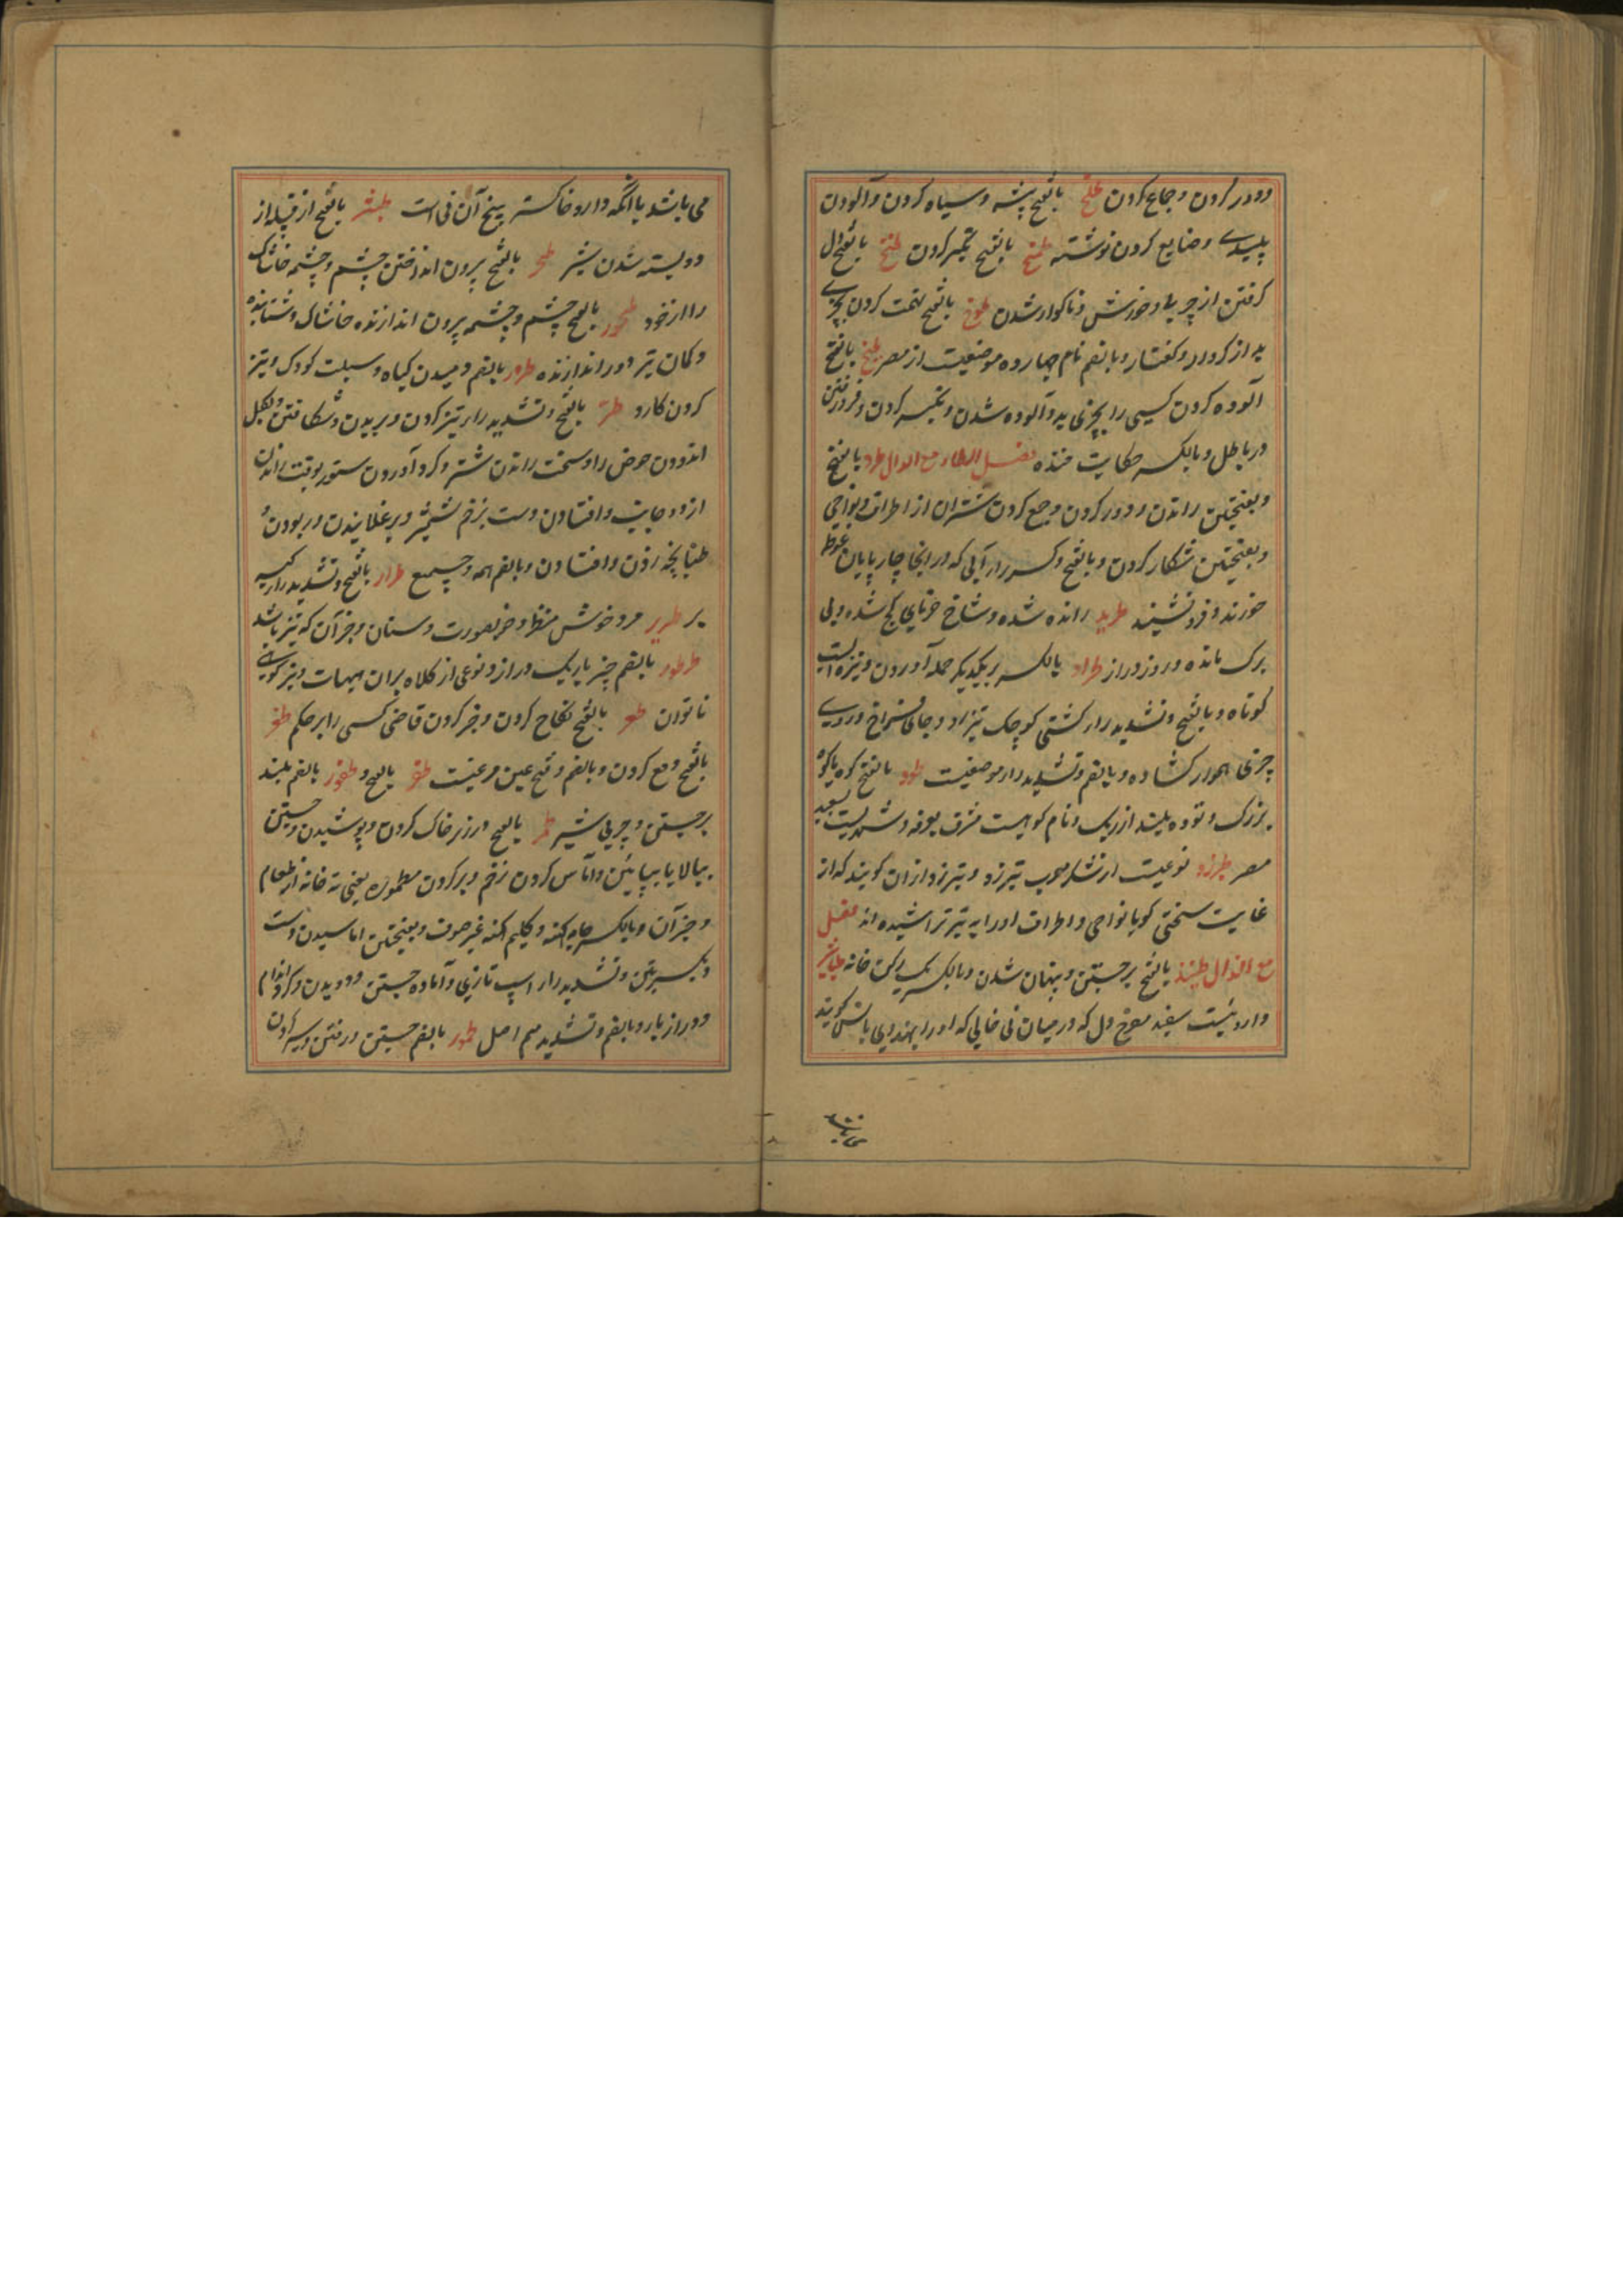 دور کردن و جماع کردن طلخ بالفتح پشه و سیاه کردن و آلودن
پلیدے و ضایع کردن نوشته طمخ بالفتح تکبر کردن طنخ بالفتح دل
کرفتن از چربی و خورش و ناکوار شدن طوخ بالفتح تهمت کردن بچیزے
بد از کردار و کفتار و بالضم نام چهارده موضعیت از مصر طیخ بالفتح
آلوده کردن کسی را بچیزی بد و آلوده شدن و تکبر کردن و فرو رفتن
در باطل و بالکسر حکایت خنده فصل الطاء مع الدال طرد بالفتح
و بفتحتین راندن و دور کردن و جمع کردن شتران از اطراف و نواحی
و بفتحتین شکار کردن و بالفتح و کسر را آبی که در آنجا چارپایان غوطه
خورند و فرو نشینند طرید رانده شده و شاخ خرمای کج شده و بی
برک مانده و روز دراز طراد بالکسر بر یکدیکر حمله آوردن و نیزه ایست
کوتاه و بالفتح و تشدید را کشتی کوچک تیز رو و جای فراخ و
چیزی هموار کشاده و بالضم و تشدید را موضعیت طود بالفتح کوه یا کوه
بزرک و توده بلند از ریک و نام کوهیست مشرف بعرفه و شهریست بصعید
مصر طبرزد نوعیت از شکر معرب تبرزد و تبرزد از آن کویند که از
غایت سختی کویا نواحی و اطراف او را به تبر تراشیده اند فصل
مع الذال طنبذ بالفتح برجستن و پنهان شدن و بالکسر یک رکن خانه طباشیر
داروئیست سفید مفرح دل که در میان نی خالی که او را بهندوی بانس کویند
می باشد
می باشد یا آنکه دارو خاکستر بیخ آن نی است طبشر بالفتح از قبیله از
و بسته شدن شیر طحر بالفتح بیرون انداختن چشم و چشمه خاشاک
را از خود طحور بالفتح چشم و چشمه بیرون اندازنده خاشاک و شتابنده
و کمان تیر دور اندازنده طرور بالضم دمیدن کیاه و سبلت کودک و تیز
کردن کارد طر بالفتح و تشدید را تیز کردن و بریدن و شکافتن و بکل
اندودن حوض را و سخت راندن شتر و کرد آوردن ستور بوقت راندن
از دو جانب و افتادن دست بزخم شمشیر و برغلانیدن و ربودن و
طپانچه زدن و افتادن و بالضم همه و جمیع طرار بالفتح و تشدید را کیسه
بر طریر مرد خوش منظر و خوبصورت و سنان و جز آن که تیز باشد
طرطور بالضم چیز باریک دراز و نوعی از کلاه بران هیئت و نیز کویند
ناتوان طعر بالفتح نکاح کردن و جبر کردن قاضی کسی را بر حکم طغر
بالفتح دفع کردن و بالضم و فتح عین مرغیست طفر بالفتح و طفور بالضم بلند
برجستن و چربی شیر طمر بالفتح در زیر خاک کردن و پوشیدن و جستن
ببالا یا بپائین و آماس کردن زخم و پر کردن مطموره یعنی ته خانه از طعام
و جز آن و بالکسر جامه کهنه و کلیم کهنه غیر صوف و بفتحتین اماسیدن دست
و بکسرتین و تشدید را اسپ تازی و آماده جستن و دویدن و کرد اندام
و دراز پا و بالضم و تشدید میم اصل طمور بالضم جستن و رفتن و سیر کردن